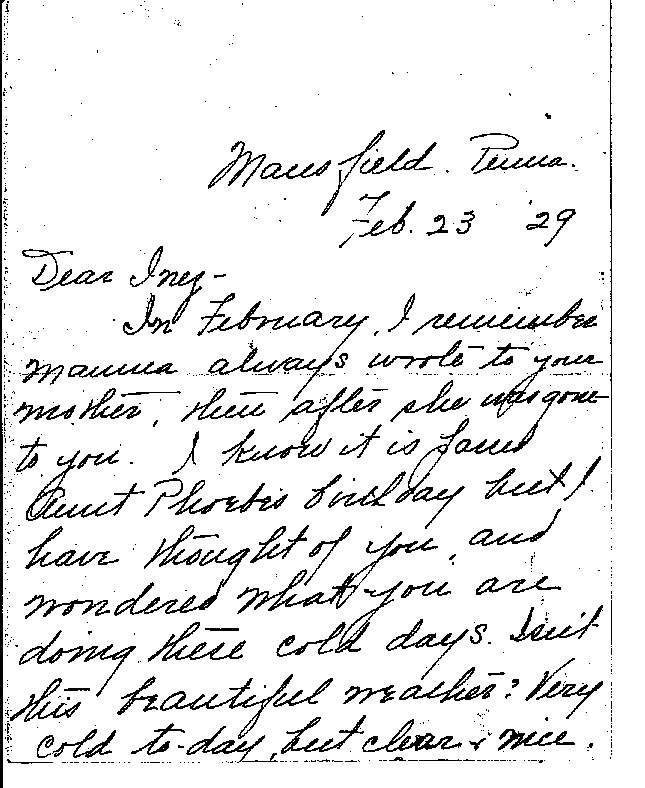 Mansfield. Penna.
Feb. 23 '29
Dear Inez-
In February, I remember
mamma always wrote to your
mother, then after she was gone
to you. I know it is past
Aunt Phoebe's birthday but I
have thought of you, and
wondered what you are
doing these cold days. Isn't
this beautiful weather? Very
cold to-day, but clear & nice.